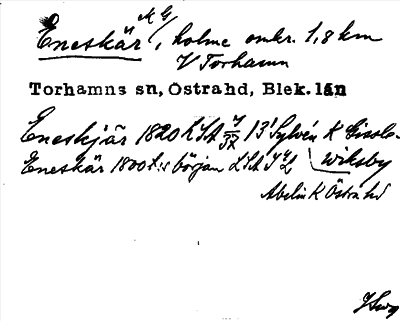 M G
Eneskär /, holme omkr. 1,8 km
V Torhamn
Torhamns sn, Östrahd, Blek. län
Eneskjär 1820 LSA 13 Sylvén K Gislö-
Eneskär 1800 t:s början LSA wiksby
Abelin K Östrahd